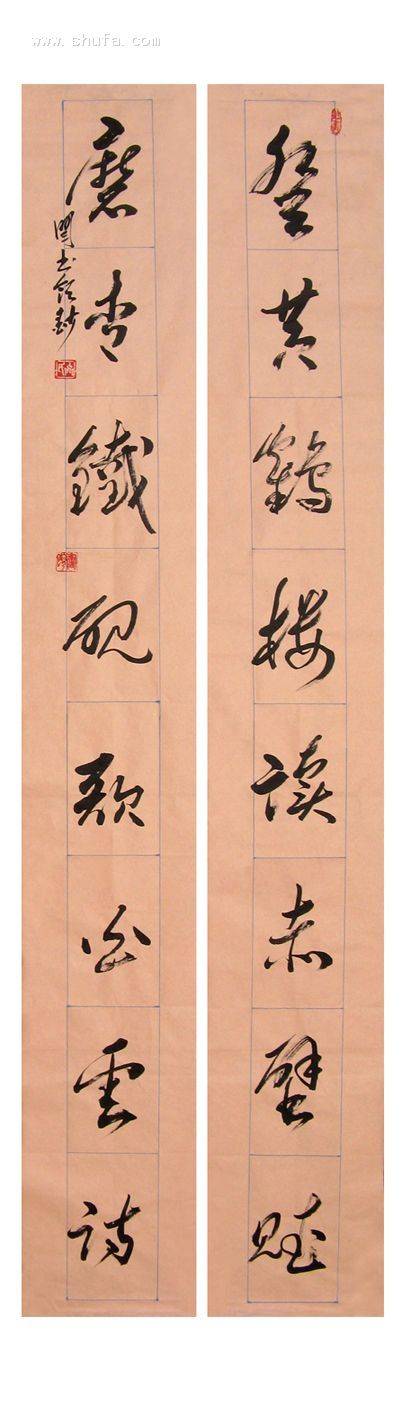 www.shufa.com
登黄鶴楼读赤壁赋
磨青鐵砚歌白雲诗